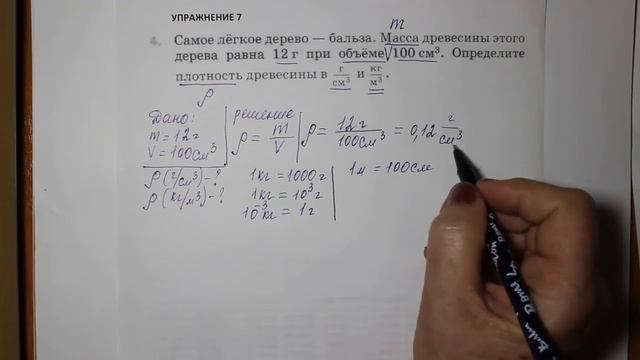 УПРАЖНЕНИЕ 7
m
4. Самое лёгкое дерево — бальза. Масса древесины этого
дерева равна 12 г при объёме V 100 см³. Определите
плотность древесины в г/см³ и кг/м³.
ρ
Дано:
m = 12 г
V = 100 см³
ρ (г/см³) – ?
ρ (кг/м³) – ?
решение
ρ = m/V
ρ = 12 г/100 см³ = 0,12 г/см³
1 кг = 1000 г
1 кг = 10³ г
10⁻³ кг = 1 г
1 м = 100 см